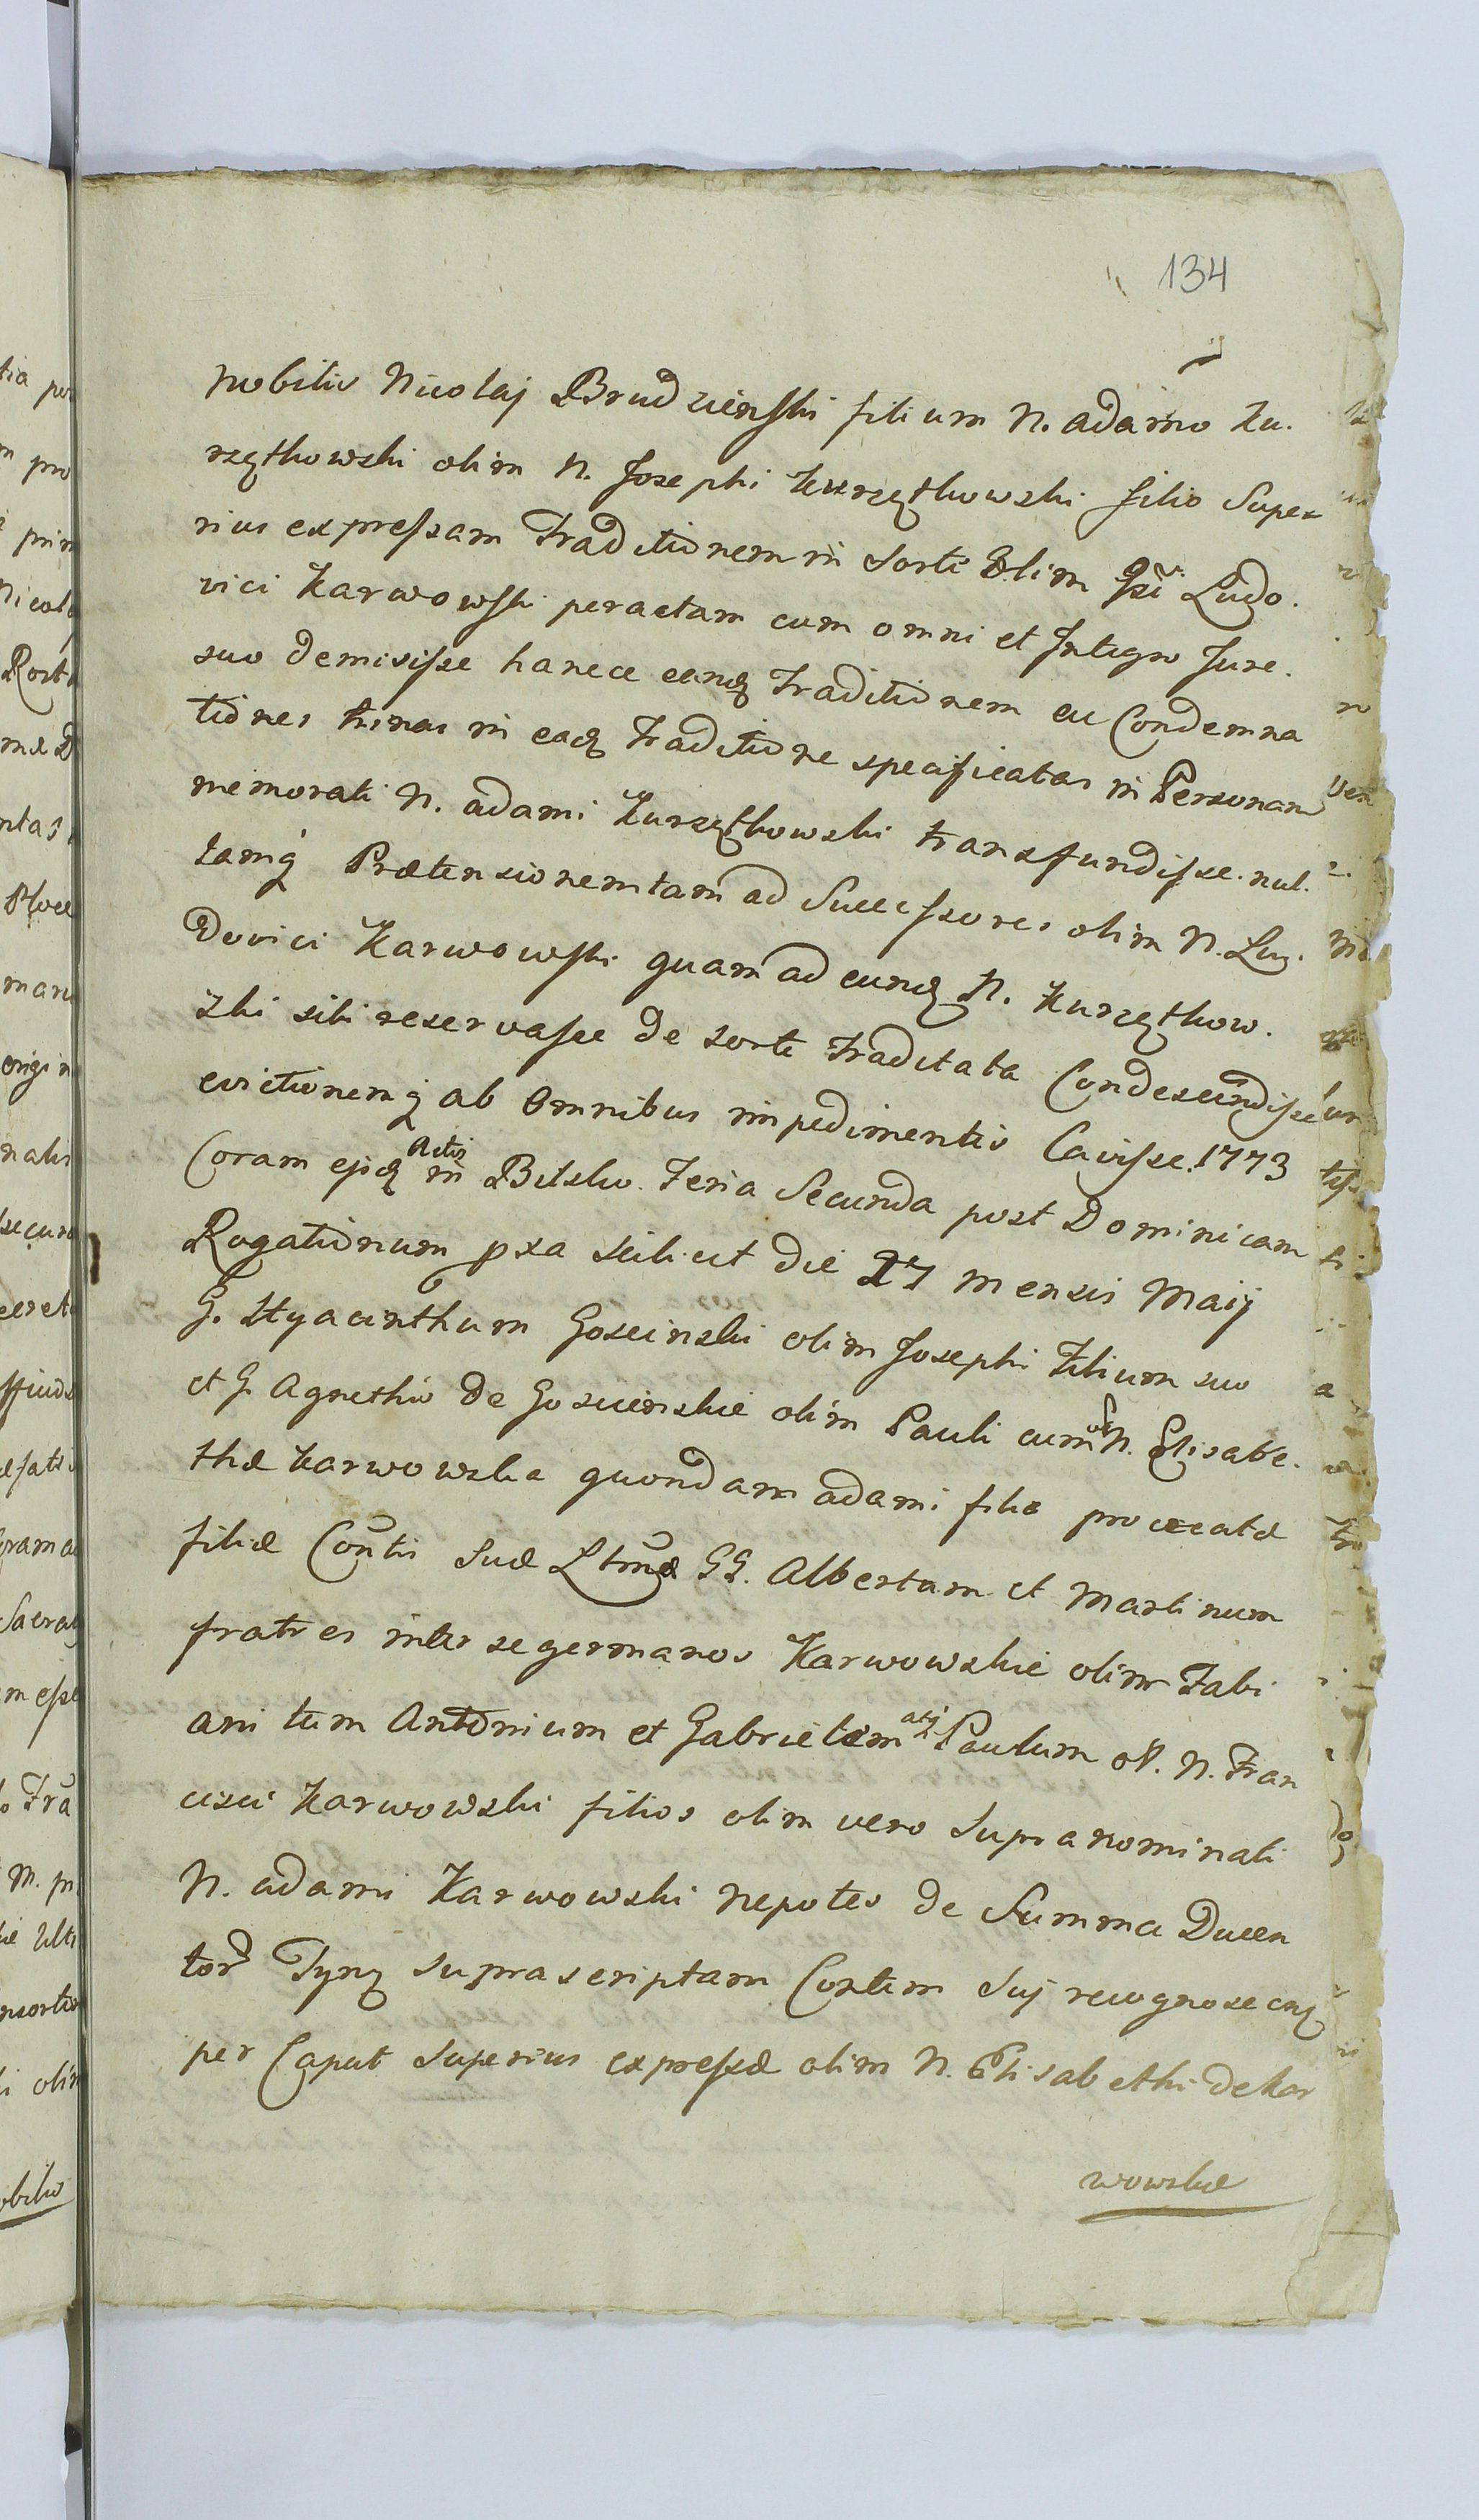 134
nobilis Nicolaj Brudzienski filium N. adamo Ku.
rzętkowski olim N. Josephi Kurzętkowski filio Supe
rius expressam Traditionem in Sorte Olim Ludo.
vici Karwowski peractam cum omni et Integro Jure.
suo demisisse hancce eandę Traditionem ac Condemna
tiones trinas in eadę Traditione specificatas in Personam
memorati N. adami Kurzętkowski transfundisse. nul.
lamq Prætensionem tam ad Successores olim N. Lu.
dovici Karwowski quam ad eundę N. Kurzętkow.
ski sibi reservasse de sorte Tradita ta Condescendisse
evictionemq ab Omnibus impedimentis Cavisse. 1773
Coram ejsdę Actis in Bilsko. Feria Secunda post Dominicam
Rogationum pxa scilicet die 27 mensis Maij
G. Hyacinthum Goscinski olim Josephi Filium suo
et G. Agnethis de Goscienskie olim Pauli cum N. Elisabe.
thæ Karwowska quondam adami filia procreatæ
filiæ Contis Suæ Ltmæ GG. Albertum et Martinum
fratres inter se germanos Karwowskie olim Fabi
ani tum Antonium et Gabrielem atq Paulum ol. N. Fran
cisci Karwowski filios olim vero Supra nominati
N. adami Karwowski nepotes de Summa Ducen
tor Tynf suprascriptam Contem Suj recognoscen
per Caput Superius expressæ olim N. Elisabethi de Kar
wowskie